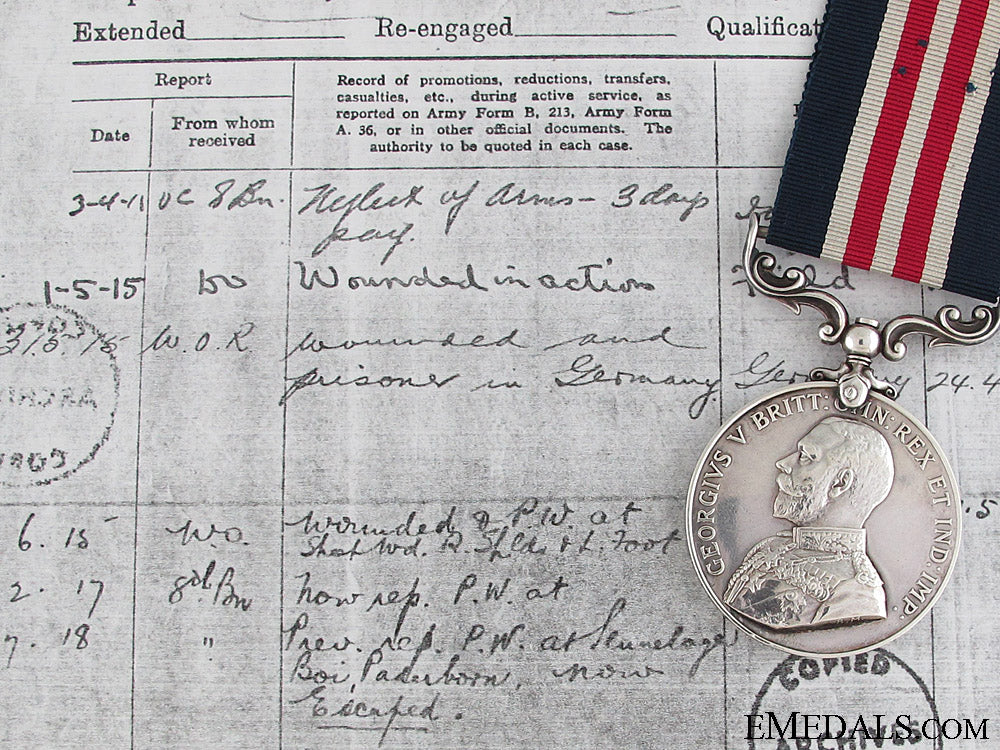 Extended
Re-engaged
Qualificat
Report
Date
From whom
received
Record of promotions, reductions, transfers,
casualties, etc., during active service, as
reported on Army Form B, 213, Army Form
A. 36, or in other official documents. The
authority to be quoted in each case.
3-4-11 OC 8 Bn. Neglect of Arms - 3 days
pay.
1-5-15 Do Wounded in action Field
W.O.R. wounded and
prisoner in Germany Germany 24.4
6. 15 W.O. Wounded & P.W. at
Shot Wd. R. Shldr & L. Foot
2. 17 8th Bn Now rep. P.W. at
7. 18 " Prev. rep. P.W. at Sennelager
Bei Paderborn, now
Escaped.
GEORGIVS V BRITT: OMN: REX ET IND: IMP:
COPIED
ARCHIVES
EMEDALS.COM